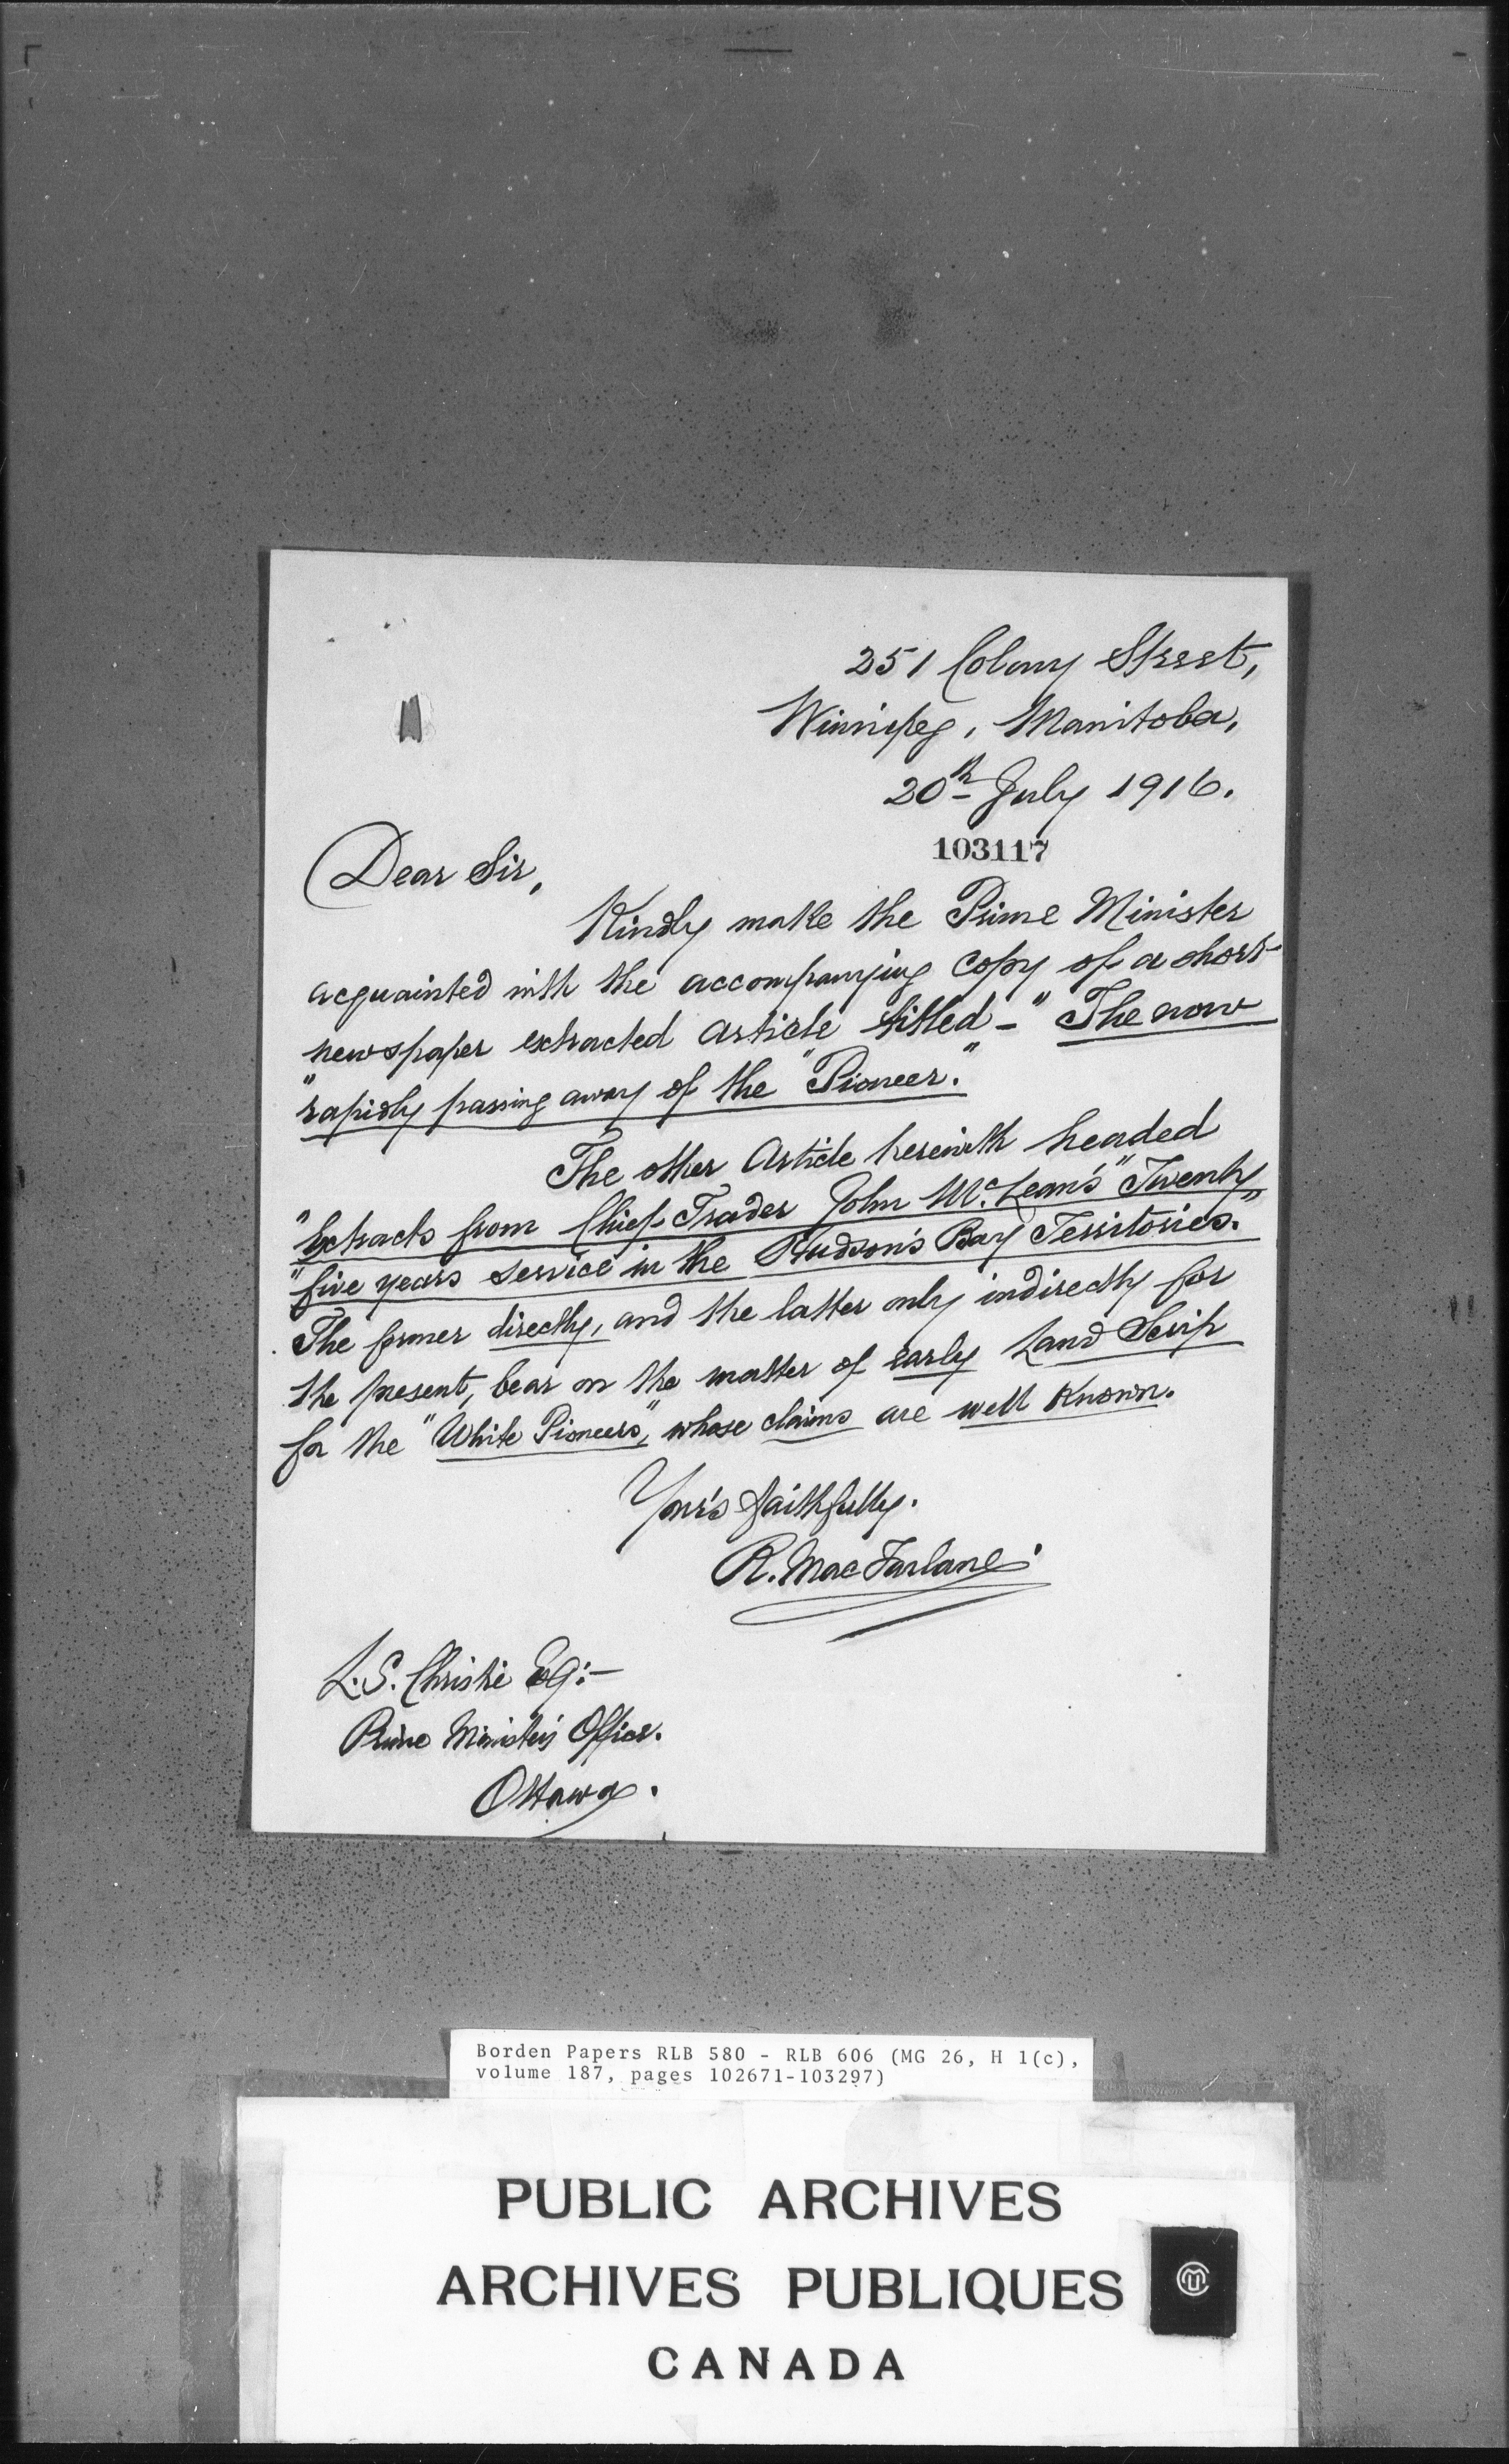 251 Colony Street,
Winnipeg, Manitoba,
20th July 1916.
103117
Dear Sir,
Kindly make the Prime Minister
acquainted with the accompanying copy of a short
newspaper extracted article titled - "The now
"rapidly passing away of the "Pioneer."
The other Article herewith headed
"Extracts from Chief Trader John McLean's "Twenty
"five years service in the Hudson's Bay Territories."
The former directly, and the latter only indirectly for
the present, bear on the matter of early Land Scrip
for the "White Pioneers", whose claims are well known.
Your's faithfully.
R. MacFarlane
L.S. Christie Esq:-
Prime Minister's Office.
Ottawa.
Borden Papers RLB 580 - RLB 606 (MG 26, H 1(c),
volume 187, pages 102671-103297)
PUBLIC ARCHIVES
ARCHIVES PUBLIQUES
CANADA